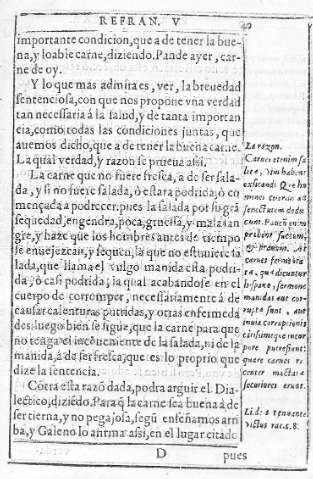 REFRAN. V
40
importante condicion, que a de tener la bue-
na, y loable carne, diziendo. Pan de ayer, car-
ne de oy.
Y lo que mas admira es, ver, la breuedad
sentenciosa, con que nos propone vna verdad
tan necessaria á la salud, y de tanta importan
cia, como todas las condiciones juntas, que
auemos dicho, que a de tener la buena carne.
La qual verdad, y razon se prueua assi.
La carne que no fuere fresca, a de ser sala-
da, y si no fuere salada, ò estara podrida, ò co
mençada a podrecer. pues la salada por su grã
sequedad, engendra, poca, gruessa, y mala san
gre, y haze que los hombres antes de tiempo
se enuejezcan, y sequen, la que no estuuiere sa
lada, que llama el vulgo manida esta podri-
da, ò casi podrida, la qual acabandose en el
cuerpo de corromper, necessariamente á de
causar calenturas putridas, y otras enfermeda
des. luego bien se sigue, que la carne para que
no tenga el inconueniente de la salada, ni de la
manida, á de ser fresca, que es lo proprio que
dize la sentencia.
Cõtra esta razõ dada, podra arguir el Dia-
lectico, diziẽdo. Para q̃ la carne sea buena á de
ser tierna, y no pegajosa, segũ enseñamos arri
ba, y Galeno lo afirma assi, en el lugar citado
D
pues
La razon.
Carnes etenim sa
lite,
exiccandi
mines citius ad
senectutem dedu
cunt.
prebent succum,
At
carnes
ra, que dicuntur
hispano, sermone
manidas aut cor-
rupte sunt, aut
inuia corruptionis
incor
pore putrefiunt:
quare carnes re
center mactatæ
securiores erunt.
Li. de
victus rat. c. 8.